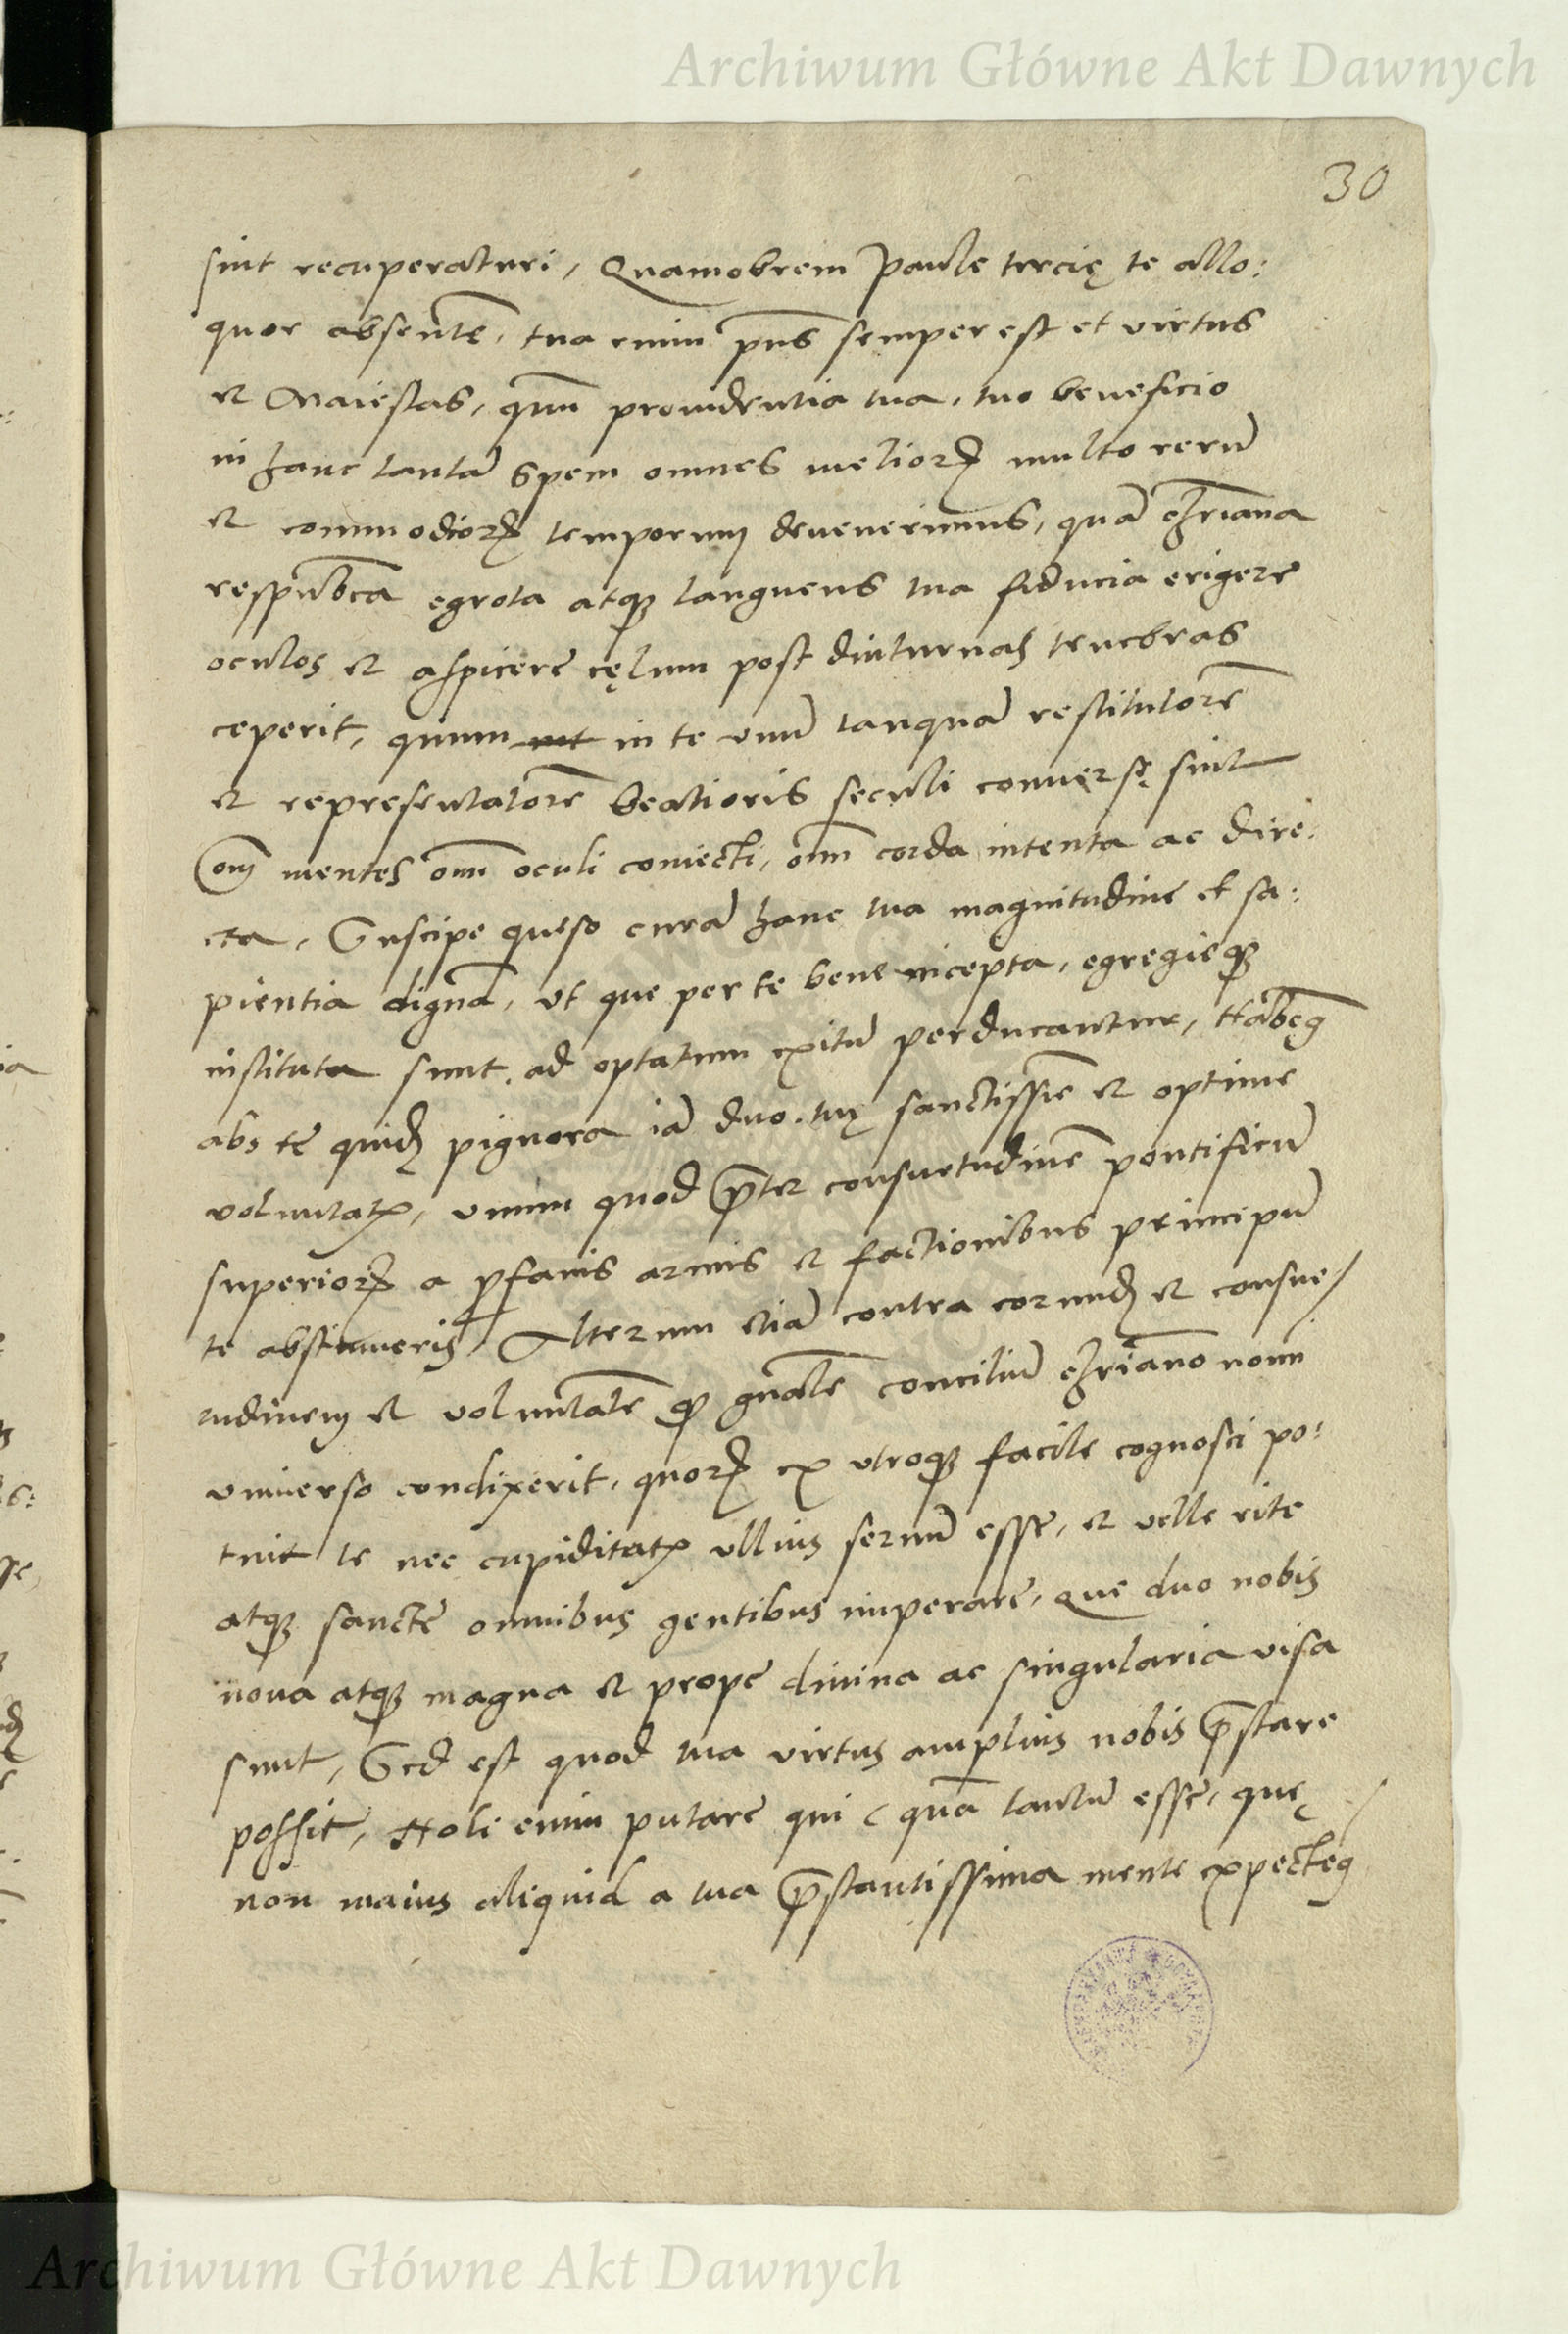 Archiwum Główne Akt Dawnych
30
sint recuperaturi, Quamobrem Paule tercię te allo:
quor absentē, tua enim pn̄s semper est et virtus
et Maiestas, qūm prouidentia tua, tuo beneficio
in hanc tantā spem omnes meliorꝝ multo rerū
et commodiorꝝ temporum deuenerimus, quā chr̄iana
respub̄ca egrota atqꝫ languens tua fiducia erigere
oculos et aspicere cęlum post diuturnas tenebras
ceperit, quum in te vnū tanquā restitutorē
et representatorē beatioris seculi conuersę sint
om̄ mentes om̄ oculi coniecti, om̄ corda intenta ac dire:
cta, Suscipe queso curā hanc tua magnitudine et sa:
pientia dignā, vt que per te bene incepta, egregieqꝫ
instituta sunt, ad optatum exitū perducantur, Habem9
abs te quidē pignora iā duo tuę sanctissīe et optime
voluntatꝭ, vnum quod p̄ter consuetudinē pontificū
superiorꝝ a ꝓfanis armis et factionibus principū
te abstinueris Alterum etiā contra eorundē et consue/
tudinem et voluntatē qꝫ gn̄ale conciliū chr̄iano nomī
vniuerso condixerit, quorꝝ ex vtroqꝫ facile cognosci po:
tuit te nec cupiditatꝭ ullius seruū esse, et velle rite
atqꝫ sancte omnibus gentibus imperare, Que duo nobis
noua atqꝫ magna et prope diuina ac singularia visa
sunt, Sed est quod tua virtus amplius nobis p̄stare
possit, Noli enim putare qui quā tantū esse, quę
non maius aliquid a tua p̄stantissima mente expectem9
Archiwum Główne Akt Dawnych